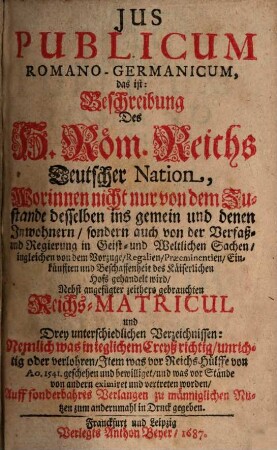 JUS
PUBLICUM
ROMANO-GERMANICUM,
das ist:
Beschreibung
Des
H. Röm. Reichs
Teutscher Nation,
Worinnen nicht nur von dem Zu-
stande desselben ins gemein und denen
Inwohnern / sondern auch von der Verfaß-
und Regierung in Geist- und Weltlichen Sachen /
ingleichen von dem Vorzuge / Regalien / Præeminentien / Ein-
künfften und Beschaffenheit des Käiserlichen
Hofs gehandelt wird /
Nebst angefügter zeithero gebrauchten
Reichs-MATRICUL
und
Drey unterschiedlichen Verzeichnissen:
Nemlich was in ieglichem Creyß richtig / unrich-
tig oder verlohren / Item was vor Reichs-Hülffe von
Ao. 1541. geschehen und bewilliget / und was vor Stände
von andern eximiret und vertreten worden /
Auff sonderbahres Verlangen zu männiglichen Nu-
tzen zum andernmahl in Druck gegeben.
Franckfurt und Leipzig
Verlegts Anthon Beyer / 1687.